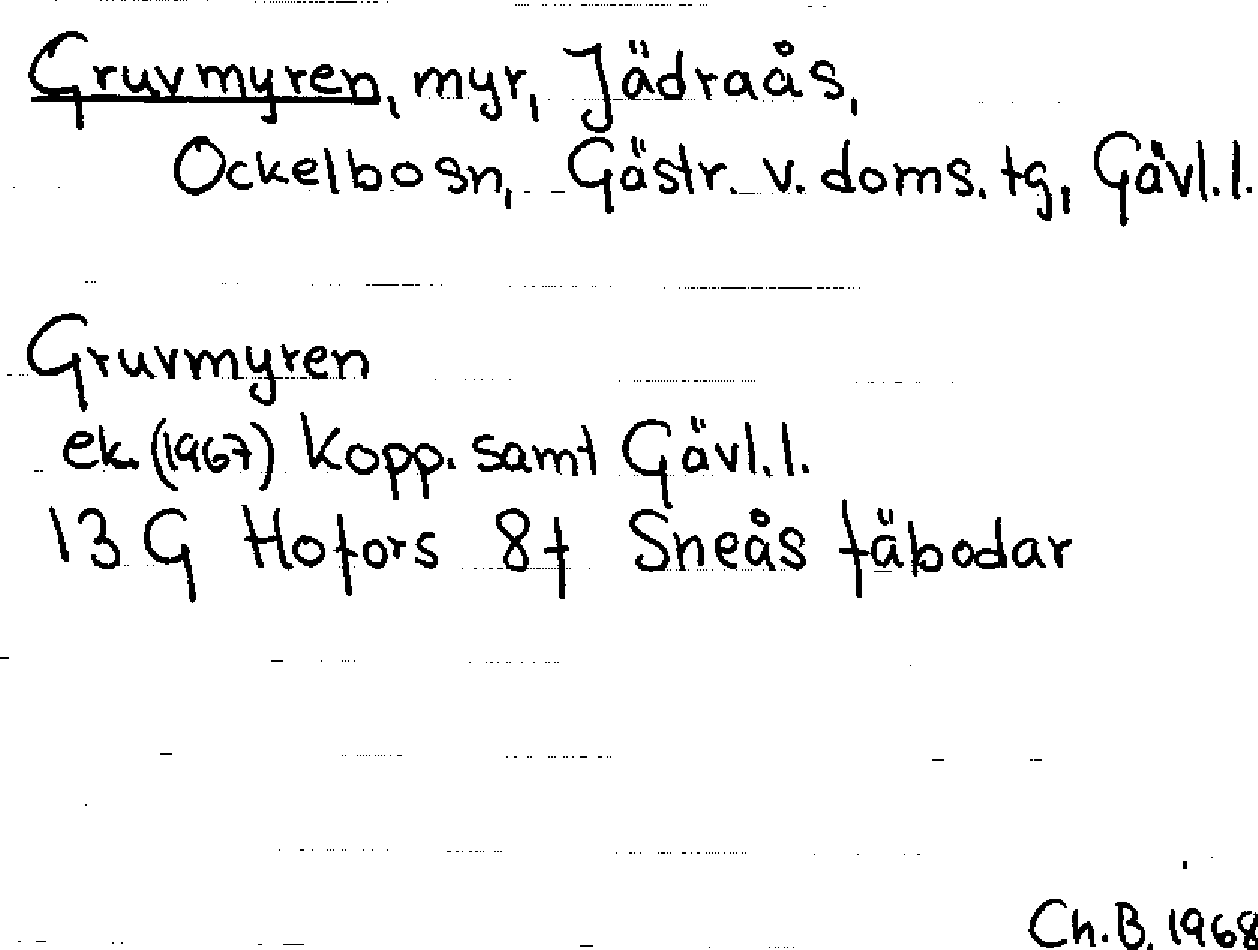 Gruvmyren, myr, Jädraås,
Ockelbo sn, Gästr. v. doms. tg, Gävl. l.
Gruvmyren
ek. (1967) Kopp. samt Gävl. l.
13 G Hofors 8f Sneås fäbodar
Ch. B. 1968